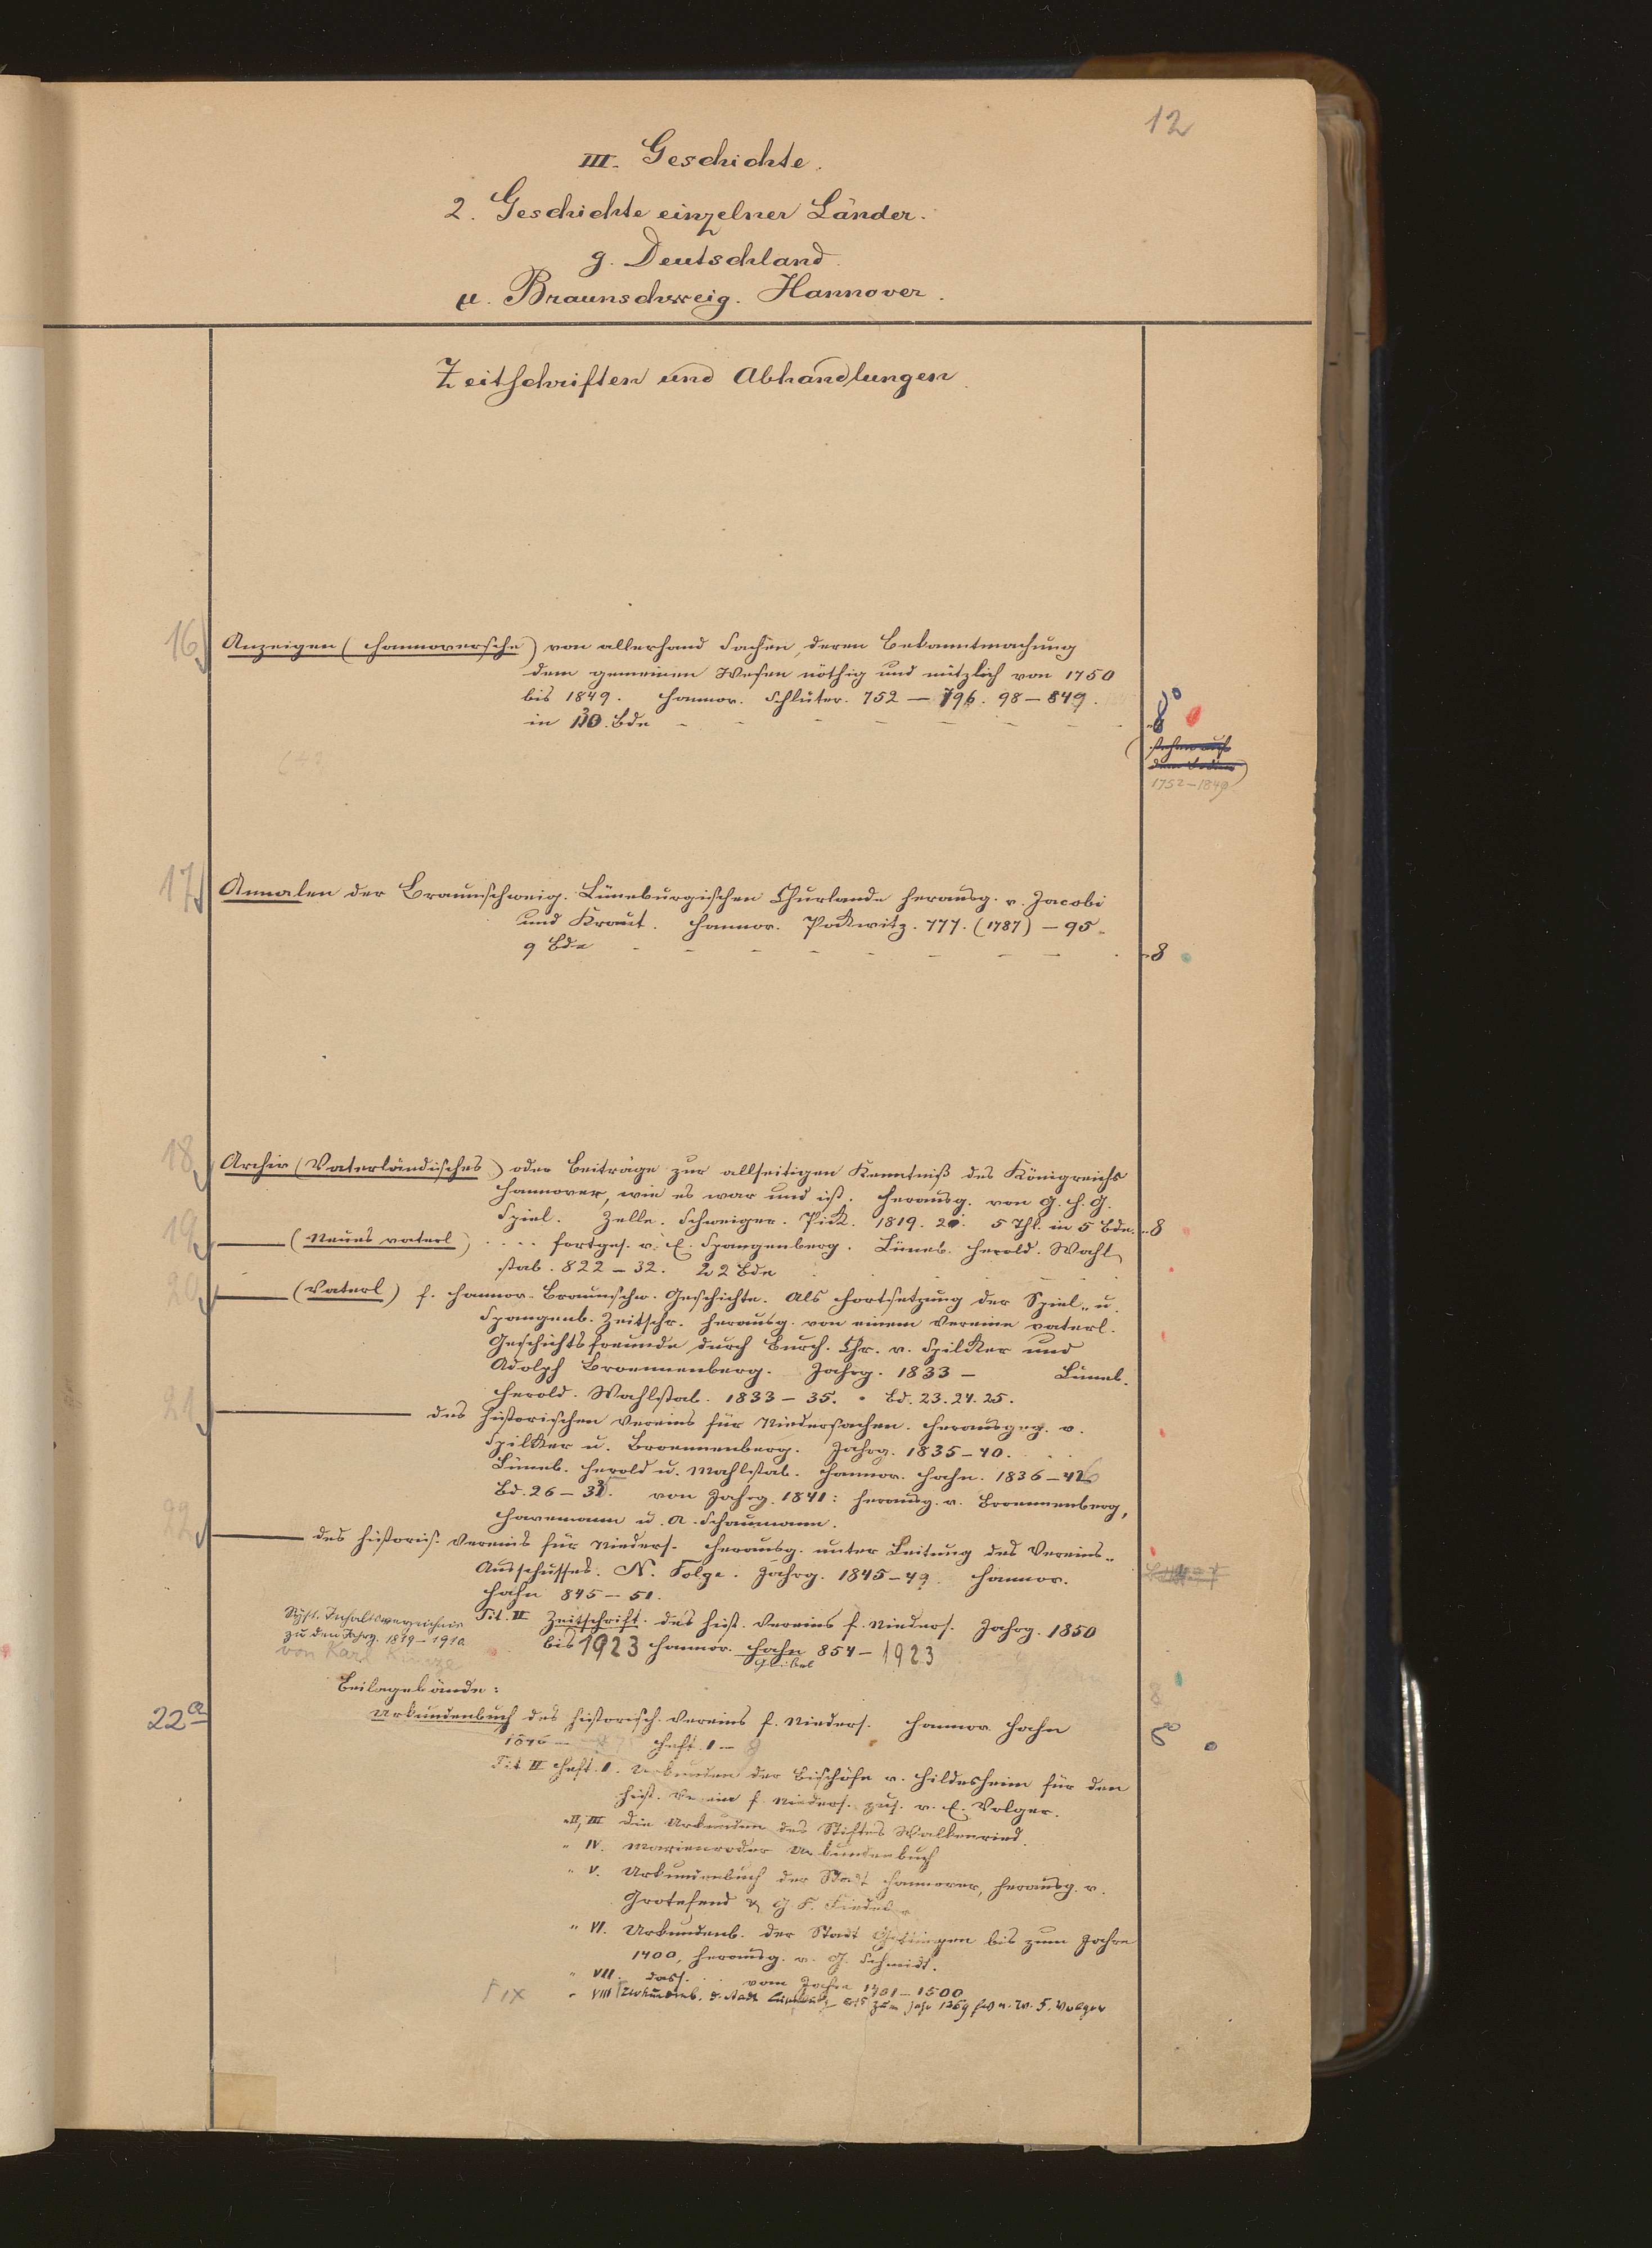 12
III. Geschichte.
2. Geschichte einzelner Länder.
g. Deutschland.
μ. Braunschweig. Hannover.
Zeitschriften und Abhandlungen
16 Anzeigen (Hannoversche) von allerhand Sachen, deren Bekanntmachung
dem gemeinen Wesen nöthig und nützlich von 1750
bis 1849. Hannov. Schlüter. 752 — 796. 98 — 849.
in 130. Bde - - - - - - 8°
(stehen auf
dem Boden)
1752-1849
17 Annalen der Braunschweig. Lüneburgischen Churlande herausg. v. Jacobi
und Kraut. Hannov. Pockwitz. 777. (1787) — 95.
9 Bde - - - - - - - - 8
18 Archiv (Vaterländisches) oder Beiträge zur allseitigen Kenntniß des Königreichs
Hannover, wie es war und ist. Herausg. von G. H. G.
Spiel. Zelle. Schweiger. Pick. 1819. 20. 5 Thl. in 5 Bde. 8
19 —— (Neues vaterl) .... fortges. v. E. Spangenberg. Lüneb. Herold. Wahl
stab. 822 — 32. 22 Bde
20 —— (Vaterl) f. Hannov.-Braunschw. Geschichte. Als Fortsetzung der Spiel- u.
Spangenb. Zeitschr. herausg. von einem Vereine vaterl.
Geschichtsfreunde durch Burch. Chr. v. Spilcker und
Adolph Broennenberg. Jahrg. 1833 — Lüneb.
Herold. Wahlstab. 1833 — 35. Bd. 23. 24. 25.
21 —— des historischen Vereins für Niedersachsen. Herausgeg. v.
Spilcker u. Broennenberg. Jahrg. 1835-40.
Lüneb. Herold u. Wahlstab. Hannov. Hahn. 1836-
Bd. 26 — von Jahrg. 1841: herausg. v. Broennenberg,
Havemann u. A. Schaumann.
22 —— des historis. Vereins für Nieders. Herausg. unter Leitung des Vereins-
Ausschusses. N. Folge. Jahrg. 1845-49. Hannov.
Hahn 845 — 51.
Tit. II Zeitschrift des hist. Vereins f. Nieders. Jahrg. 1850
bis 1923 Hannov. Hahn 854 — 1923
Geibel
Syst. Inhaltsverzeichnis
zu den Jahrg. 1819-1910
von Karl Kunze
Beilagebände: 8
22a Urkundenbuch des historisch. Vereins f. Nieders. Hannov. Hahn 8°
1846 — Heft. 1 — 9
Tit. II Heft. I. Urkunden der Bischöfe v. Hildesheim für den
hist. Verein f. Nieders. zus. v. E. Volger.
" II, III Die Urkunden des Stiftes Walkenried.
" IV. Marienroder Urkundenbuch
" V. Urkundenbuch der Stadt Hannover, herausg. v.
Grotefend & G F. Fiedeler
" VI. Urkundenb. der Stadt Göttingen bis zum Jahre
1400, herausg. v. G. Schmidt.
" VII. dass. ... vom Jahre 1401-1500
IX " VIII Urkundenb. d. Stadt Lüneburg bis zum Jahr 1369 hrsg. v. W. F. Volger